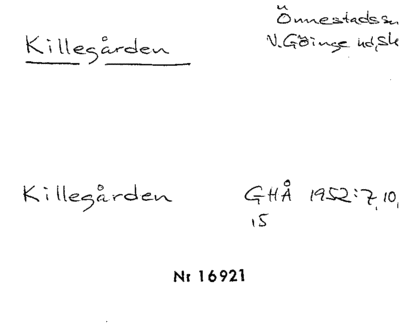 Killegården
Önnestads sn
V. Göinge hd, Sk
Killegården GHÅ 1952:7, 10,
15
Nr 16921